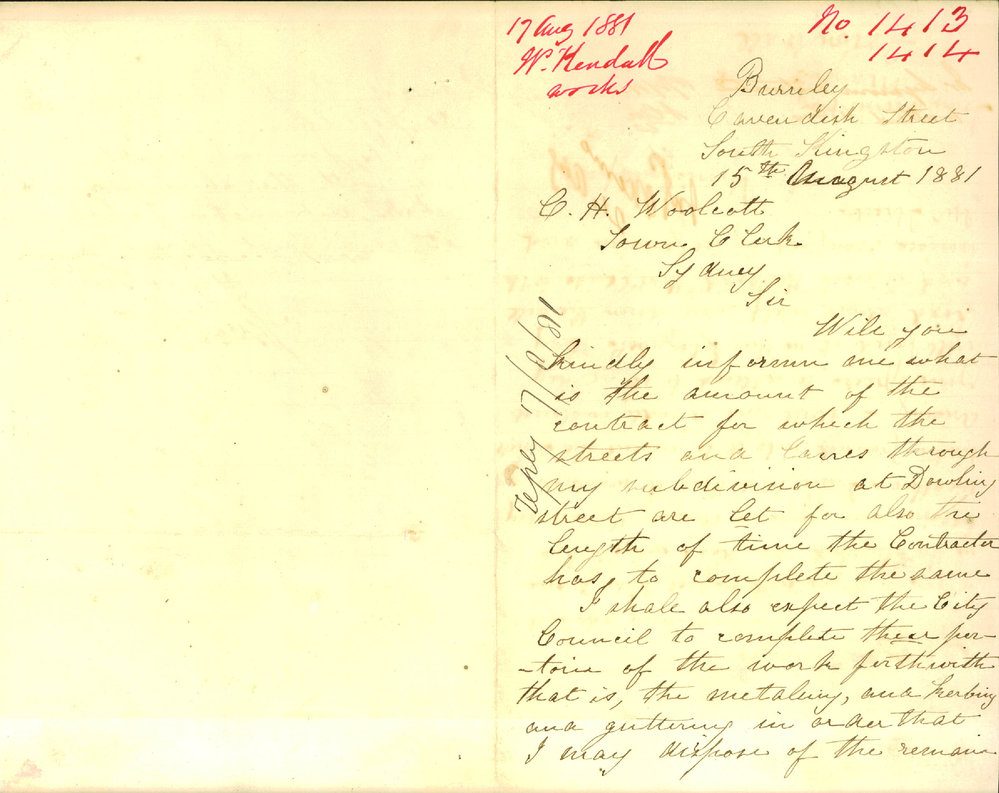 17 Aug 1881
Wm. Kendall
works
No. 1413
1414
Burnley
Cavendish Street
South Kingston
15th August 1881
C. H. Woolcott
Town Clerk
Sydney
Sir
Will you
kindly inform me what
is the amount of the
contract for which the
streets and Lanes through
my subdivision at Dowling
street are let for also the
length of time the Contractor
has to complete the same
I shall also expect the City
Council to complete their por-
-tons of the work forthwith
that is, the metaling, and Kerbing
and guttering in order that
I may dispose of the remain
reply 7/9/81